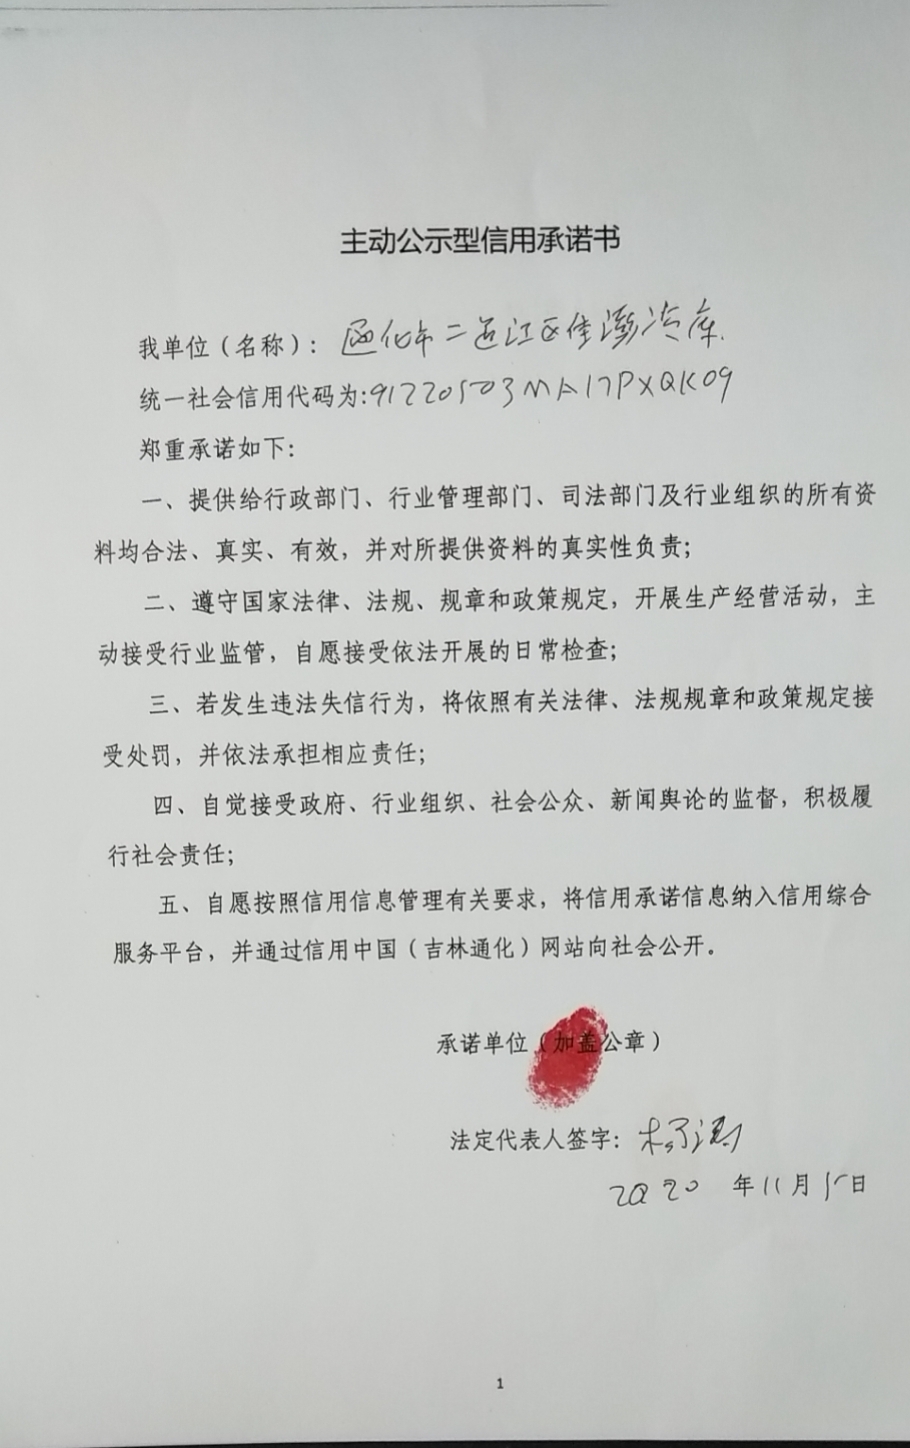 主动公示型信用承诺书
我单位（名称）：通化市二道江区佳澎冷库
统一社会信用代码为:91220503MA17PXQK09
郑重承诺如下：
一、提供给行政部门、行业管理部门、司法部门及行业组织的所有资
料均合法、真实、有效，并对所提供资料的真实性负责；
二、遵守国家法律、法规、规章和政策规定，开展生产经营活动，主
动接受行业监管，自愿接受依法开展的日常检查；
三、若发生违法失信行为，将依照有关法律、法规规章和政策规定接
受处罚，并依法承担相应责任；
四、自觉接受政府、行业组织、社会公众、新闻舆论的监督，积极履
行社会责任；
五、自愿按照信用信息管理有关要求，将信用承诺信息纳入信用综合
服务平台，并通过信用中国（吉林通化）网站向社会公开。
承诺单位（加盖公章）
法定代表人签字：
2020 年11月15日
1